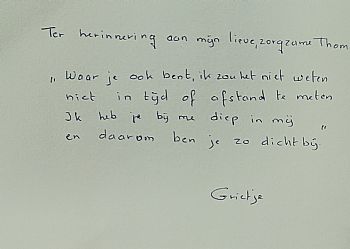 Ter herinnering aan mijn lieve, zorgzame Thom
„ Waar je ook bent, ik zou het niet weten
niet in tijd of afstand te meten
Ik heb je bij me diep in mij
en daarom ben je zo dichtbij. ”
Grietje